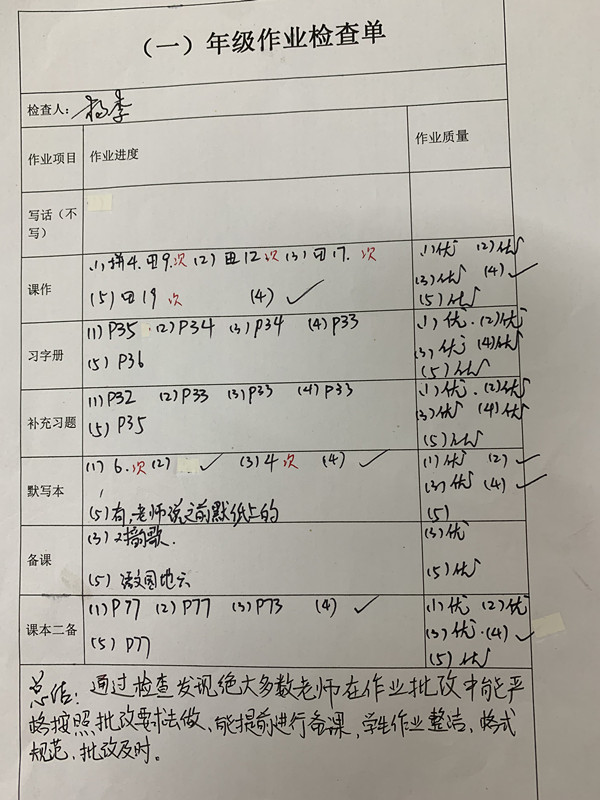 （一）年级作业检查单
检查人：杨李
作业项目 作业进度 作业质量
写话（不写）
课作 (1)拼4.田9.次 (2)田12次 (3)田17.次 (1)优 (2)优
(5)田19次 (4)✓ (3)优 (4)✓
(5)优
习字册 (1)P35 (2)P34 (3)P34 (4)P33 (1)优.(2)优
(5)P36 (3)优 (4)优
(5)优
补充习题 (1)P32 (2)P33 (3)P33 (4)P33 (1)优.(2)优
(5)P35 (3)优 (4)优
(5)优
默写本 (1)6.次 (2)✓ (3)4次 (4)✓ (1)优 (2)✓
(5)有,老师说之前默纸上的 (3)优 (4)✓
(5)
备课 (3)韵歌. (3)优
(5)语文园地六 (5)优
课本二备 (1)P77 (2)P77 (3)P73 (4)✓ (1)优 (2)优
(5)P77 (3)优.(4)✓
(5)优
总结：通过检查发现绝大多数老师在作业批改中能严
格按照批改要求去做、能提前进行备课,学生作业整洁、格式
规范、批改及时。